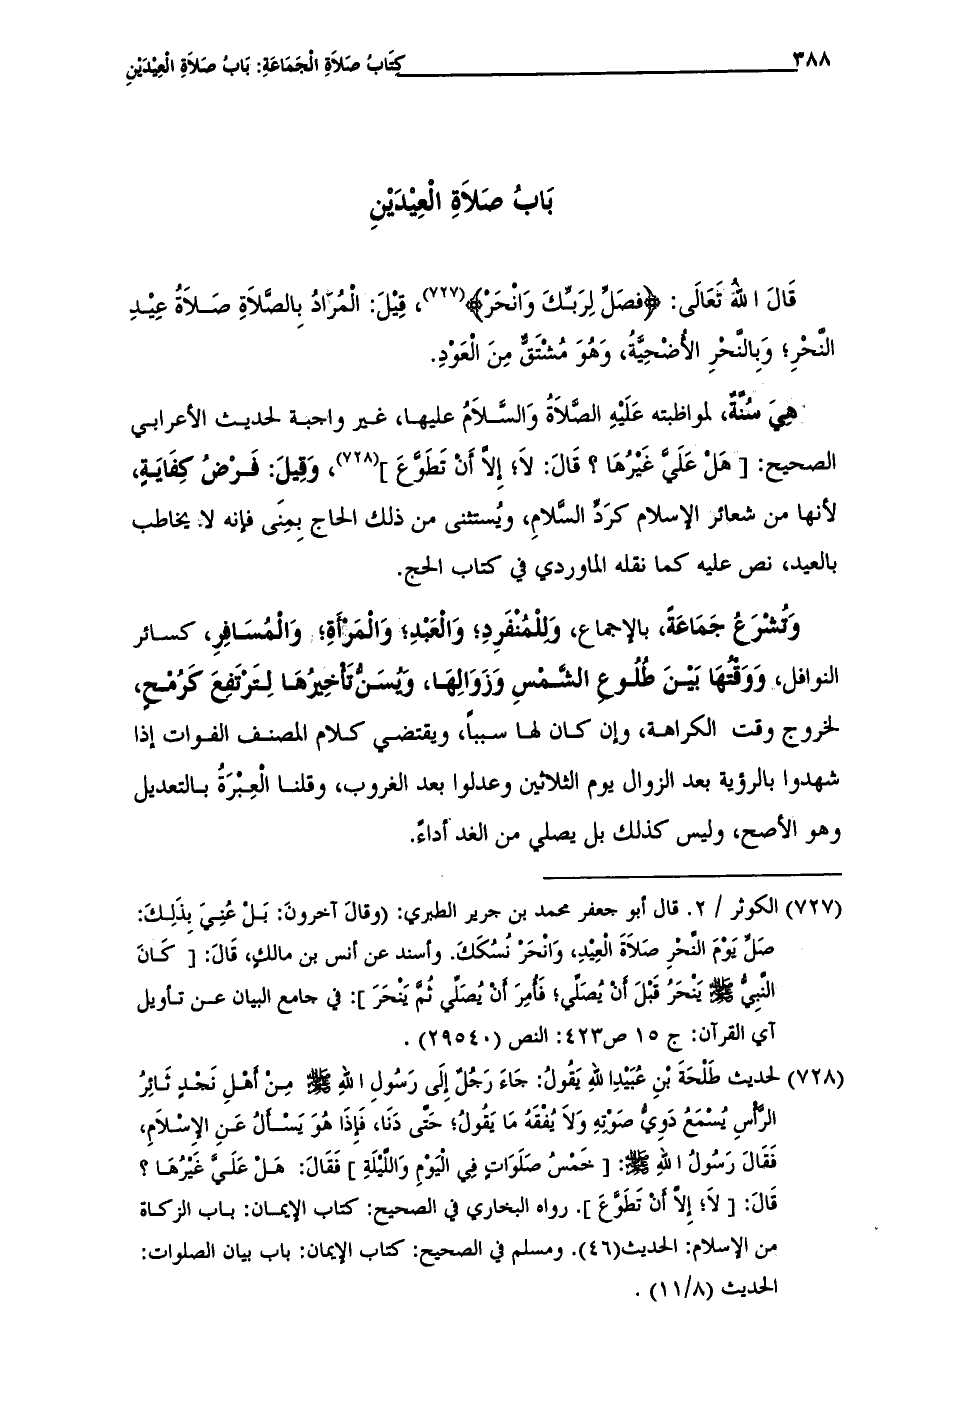 ٣٨٨ كِتَابُ صَلاَةِ الْجَمَاعَةِ: بَابُ صَلاَةِ الْعِيْدَيْنِ
بَابُ صَلاَةِ الْعِيْدَيْنِ
قَالَ اللهُ تَعَالَى: ﴿فصَلِّ لِرَبِّكَ وَانْحَرْ﴾(٧٢٧)، قِيْلَ: الْمُرَادُ بِالصَّلاَةِ صَلاَةُ عِيْدِ
النَّحْرِ؛ وَبِالنَّحْرِ الأُضْحِيَّةُ، وَهُوَ مُشْتَقٌّ مِنَ الْعَوْدِ.
هِيَ سُنَّةٌ، لمواظبته عَلَيْهِ الصَّلاَةُ وَالسَّلاَمُ عليها، غير واجبة لحديث الأعرابي
الصحيح: [ هَلْ عَلَيَّ غَيْرُهَا ؟ قَالَ: لاَ؛ إِلاَّ أَنْ تَطَوَّعَ ](٧٢٨)، وَقِيلَ: فَرْضُ كِفَايَةٍ،
لأنها من شعائر الإسلام كرَدِّ السَّلامِ، ويُستثنى من ذلك الحاج بِمِنَى فإنه لا يخاطب
بالعيد، نص عليه كما نقله الماوردي في كتاب الحج.
وَتُشْرَعُ جَمَاعَةً، بالإجماع، وَلِلْمُنْفَرِدِ؛ وَالْعَبْدِ؛ وَالْمَرْأَةِ؛ وَالْمُسَافِرِ، كسائر
النوافل، وَوَقْتُهَا بَيْنَ طُلُوعِ الشَّمْسِ وَزَوَالِهَا، وَيُسَنُّ تَأْخِيرُهَا لِتَرْتَفِعَ كَرُمْحٍ،
لخروج وقت الكراهة، وإن كان لها سبباً، ويقتضي كلام المصنف الفوات إذا
شهدوا بالرؤية بعد الزوال يوم الثلاثين وعدلوا بعد الغروب، وقلنا الْعِبْرَةُ بالتعديل
وهو الأصح، وليس كذلك بل يصلي من الغد أداءً.
(٧٢٧) الكوثر / ٢. قال أبو جعفر محمد بن جرير الطبري: (وقالَ آخرونَ: بَلْ عُنِيَ بِذَلِكَ:
صَلِّ يَوْمَ النَّحْرِ صَلاَةَ الْعِيْدِ، وَانْحَرْ نُسُكَكَ. وأسند عن أنس بن مالكٍ، قَالَ: [ كَانَ
النَّبِيُّ ﷺ يَنْحَرُ قَبْلَ أَنْ يُصَلِّي؛ فَأُمِرَ أَنْ يُصَلِّي ثُمَّ يَنْحَرَ ]: في جامع البيان عن تأويل
آي القرآن: ج ١٥ ص٤٢٣: النص (٢٩٥٤٠) .
(٧٢٨) لحديث طَلْحَةَ بْنِ عُبَيْدِاللهِ يَقُولُ: جَاءَ رَجُلٌ إِلَى رَسُولِ اللهِ ﷺ مِنْ أَهْلِ نَجْدٍ ثَائِرُ
الرَّأْسِ يُسْمَعُ دَوِيُّ صَوْتِهِ وَلاَ يُفْقَهُ مَا يَقُولُ؛ حَتَّى دَنَا، فَإِذَا هُوَ يَسْأَلُ عَنِ الإِسْلاَمِ،
فَقَالَ رَسُولُ اللهِ ﷺ: [ خَمْسُ صَلَوَاتٍ فِي الْيَوْمِ وَاللَّيْلَةِ ] فَقَالَ: هَلْ عَلَيَّ غَيْرُهَا ؟
قَالَ: [ لاَ؛ إِلاَّ أَنْ تَطَوَّعَ ]. رواه البخاري في الصحيح: كتاب الإيمان: باب الزكاة
من الإسلام: الحديث(٤٦). ومسلم في الصحيح: كتاب الإيمان: باب بيان الصلوات:
الحديث (١١/٨) .